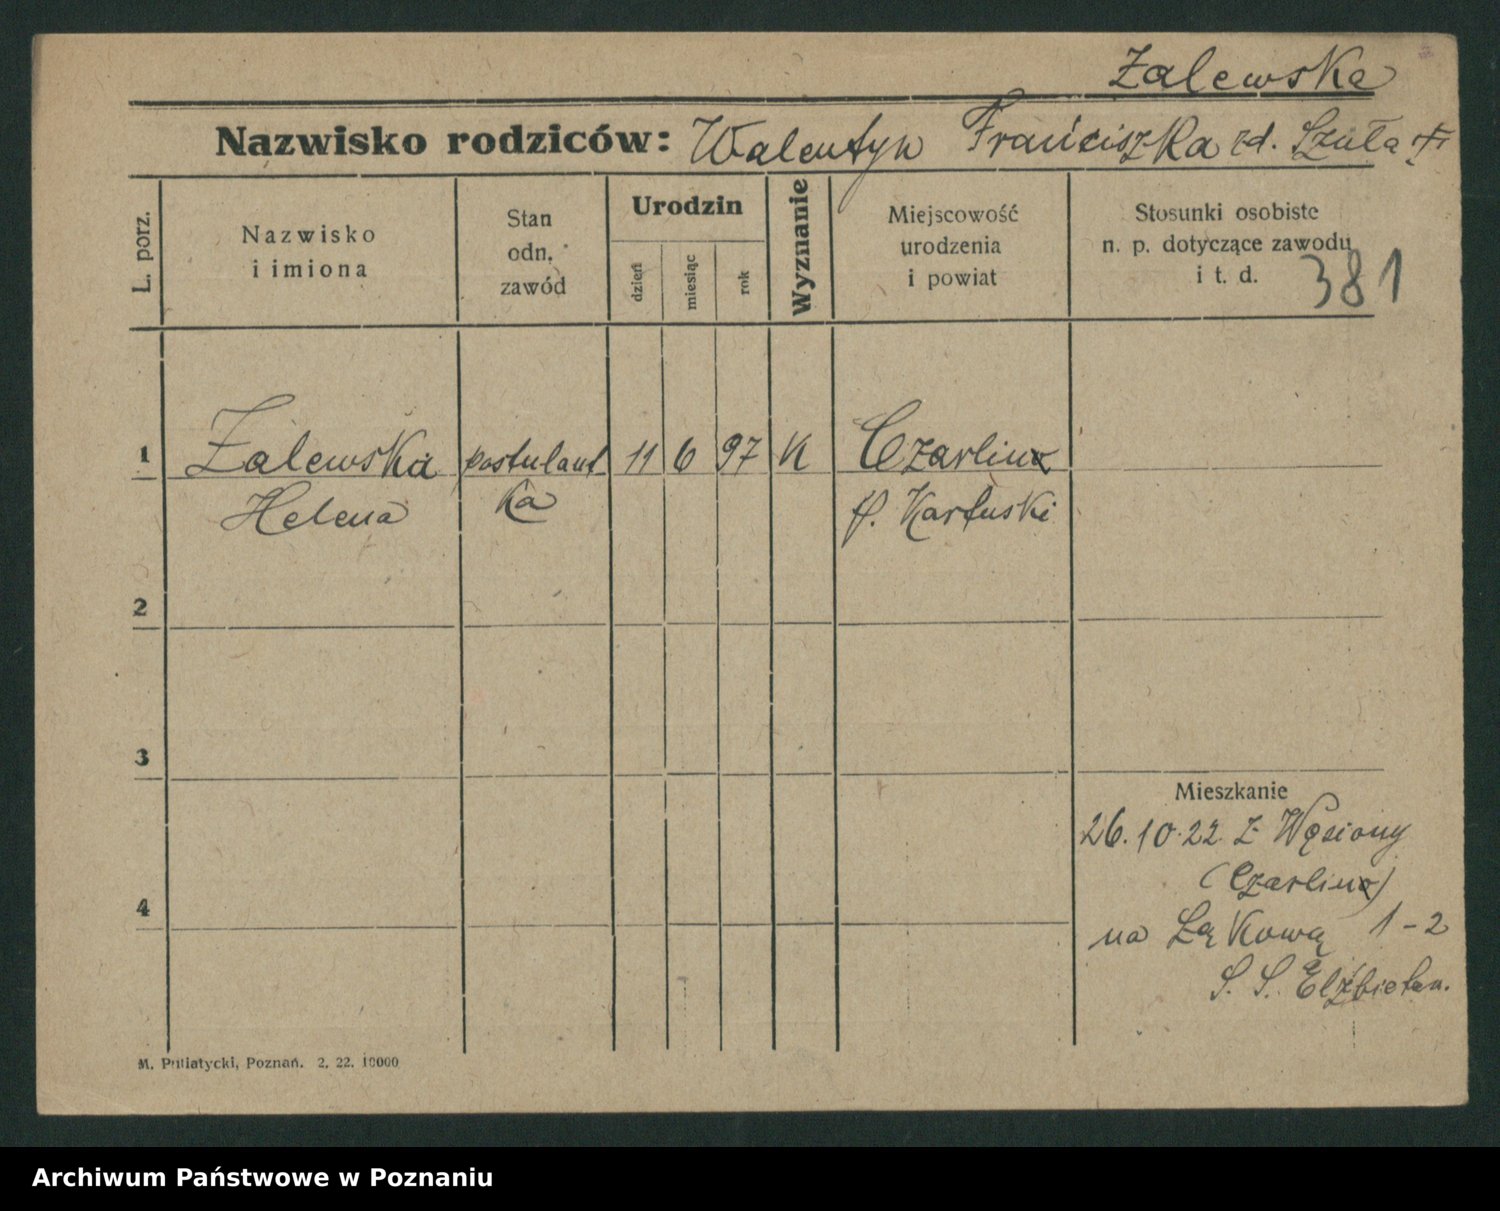 Zalewska
Nazwisko rodziców: Walentyn Franciszka zd. Szuta
L. porz.
Nazwisko
i imiona
Stan
odn.
zawód
Urodzin
dzień
miesiąc
rok
Wyznanie
Miejscowość
urodzenia
i powiat
Stosunki osobiste
n. p. dotyczące zawodu
i t. d.
381
1 Zalewska postulant 11 6 97 K Czarlina
Helena ka p. Kartuski
2
3
Mieszkanie
26.10.22 z Węsiory
(Czarlina)
4
na Łąkową 1-2
S. S. Elżbietan.
M. Putiatycki, Poznań. 2. 22. 10000
Archiwum Państwowe w Poznaniu